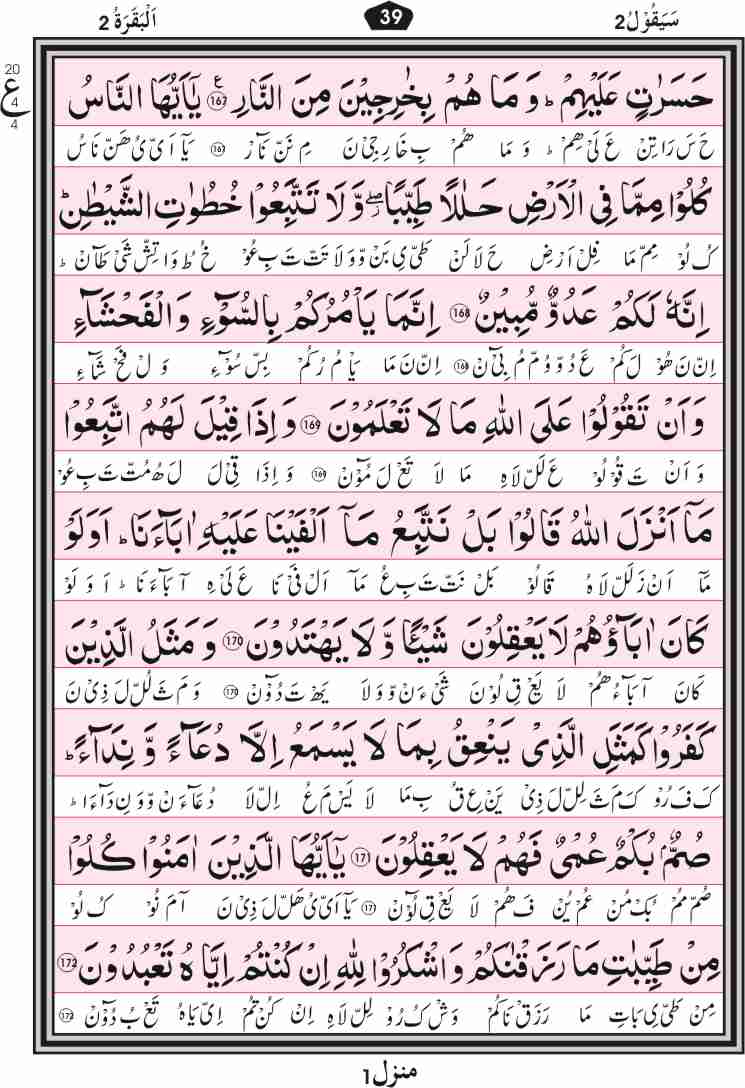 سَيَقُوْلُ 2 39 اَلْبَقَرَةُ 2
20
ع
4
4
حَسَرٰتٍ عَلَيْهِمْ ؕ وَ مَا هُمْ بِخٰرِجِيْنَ مِنَ النَّارِ ۧ۝167 يٰۤاَيُّهَا النَّاسُ
حَ سَ رَا تِنْ عَ لَىْ هِمْ ؕ وَ مَا هُمْ بِ خَا رِ جِىْ نَ مِ نَنْ نَآرْ ۝167 يَآ اَىْ ىُ هَنْ نَاسُ
كُلُوْا مِمَّا فِى الْاَرْضِ حَلٰلًا طَيِّبًا ۖ وَّ لَا تَتَّبِعُوْا خُطُوٰتِ الشَّيْطٰنِ ؕ
كُ لُوْ مِمْ مَا فِلْ اَرْضِ حَ لَا لَنْ طَىْ ىِ بَنْ وْ وَ لَا تَتْ تَ بِ عُوْ خُ طُ وَا تِشْ شَىْ طَآنْ ؕ
اِنَّهٗ لَكُمْ عَدُوٌّ مُّبِيْنٌ ۝168 اِنَّمَا يَاْمُرُكُمْ بِالسُّوْٓءِ وَ الْفَحْشَآءِ
اِنْ نَ هُوْ لَ كُمْ عَ دُوْ وُمْ مُ بِىْٓنْ ۝168 اِنْ نَ مَا يَاْ مُ رُ كُمْ بِسْ سُوْٓءِ وَ لْ فَحْ شَآءِ
وَ اَنْ تَقُوْلُوْا عَلَى اللّٰهِ مَا لَا تَعْلَمُوْنَ ۝169 وَ اِذَا قِيْلَ لَهُمُ اتَّبِعُوْا
وَ اَنْ تَ قُوْ لُوْ عَ لَلْ لَاهِ مَا لَا تَعْ لَ مُوْٓنْ ۝169 وَ اِذَا قِىْ لَ لَ هُ مُتْ تَ بِ عُوْ
مَاۤ اَنْزَلَ اللّٰهُ قَالُوْا بَلْ نَتَّبِعُ مَاۤ اَلْفَيْنَا عَلَيْهِ اٰبَآءَنَا ؕ اَوَلَوْ
مَآ اَنْ زَ لَلْ لَاهُ قَا لُوْ بَلْ نَتْ تَ بِ عُ مَآ اَلْ فَىْ نَا عَ لَىْ هِ آ بَآءَ نَا ؕ اَ وَ لَوْ
كَانَ اٰبَآؤُهُمْ لَا يَعْقِلُوْنَ شَيْـًٔا وَّ لَا يَهْتَدُوْنَ ۝170 وَ مَثَلُ الَّذِيْنَ
كَانَ آ بَآءُ هُمْ لَا يَعْ قِ لُوْنَ شَىْ ءَنْ وْ وَ لَا يَهْ تَ دُوْٓنْ ۝170 وَ مَ ثَ لُلْ لَ ذِىْ نَ
كَفَرُوْا كَمَثَلِ الَّذِىْ يَنْعِقُ بِمَا لَا يَسْمَعُ اِلَّا دُعَآءً وَّ نِدَآءً ؕ
كَ فَ رُوْ كَ مَ ثَ لِلْ لَ ذِىْ يَنْ عِ قُ بِ مَا لَا يَسْ مَ عُ اِلْ لَا دُ عَآءَنْ وْ وَ نِ دَآءَا ؕ
صُمٌّۢ بُكْمٌ عُمْىٌ فَهُمْ لَا يَعْقِلُوْنَ ۝171 يٰۤاَيُّهَا الَّذِيْنَ اٰمَنُوْا كُلُوْا
صُمْ مُمْ بُكْ مُنْ عُمْ يُنْ فَ هُمْ لَا يَعْ قِ لُوْٓنْ ۝171 يَآ اَىْ ىُ هَلْ لَ ذِىْ نَ آ مَ نُوْ كُ لُوْ
مِنْ طَيِّبٰتِ مَا رَزَقْنٰكُمْ وَ اشْكُرُوْا لِلّٰهِ اِنْ كُنْتُمْ اِيَّاهُ تَعْبُدُوْنَ ۝172
مِنْ طَىْ ىِ بَاتِ مَا رَزَقْ نَا كُمْ وَشْ كُ رُوْ لِلْ لَاهِ اِنْ كُنْ تُمْ اِىْ يَاهُ تَعْ بُ دُوْٓنْ ۝172
منزل 1